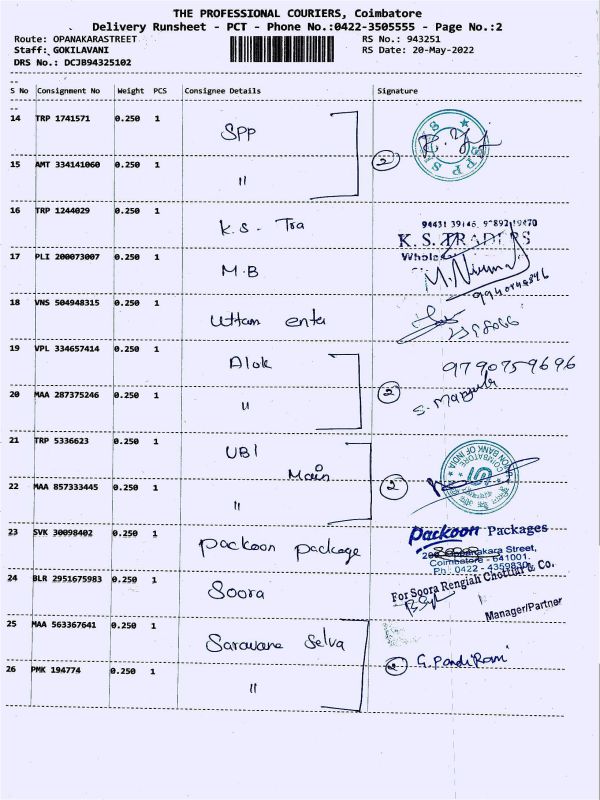 THE PROFESSIONAL COURIERS, Coimbatore
Delivery Runsheet - PCT - Phone No.:0422-3505555 - Page No.:2
Route: OPANAKARASTREET RS No.: 943251
Staff: GOKILAVANI RS Date: 20-May-2022
DRS No.: DCJB94325102
S No Consignment No Weight PCS Consignee Details Signature
14 TRP 1741571 0.250 1 SPP
15 AMT 334141060 0.250 1 " 2
SPP SALES
16 TRP 1244029 0.250 1 K.S. Tra
94431 39146
K. S. TRADERS
17 PLI 200073007 0.250 1 M.B
M. Nirmal
18 VNS 504948315 0.250 1 Uttam enter
19 VPL 334657414 0.250 1 Alok 9790759696
20 MAA 287375246 0.250 1 " 2 S. Manjula
21 TRP 5336623 0.250 1 UBI Main
UNION BANK OF INDIA
COIMBATORE
22 MAA 857333445 0.250 1 " 2
23 SVK 30098402 0.250 1 packoon package
Packoon Packages
Street,
Coimbatore - 641001.
Ph: 0422 - 4359830
24 BLR 2951675983 0.250 1 Soora
For Soora Rengiah Chettiar & Co.
Manager/Partner
25 MAA 563367641 0.250 1 Saravana Selva
26 PMK 194774 0.250 1 " 2 G. Pandi Rani